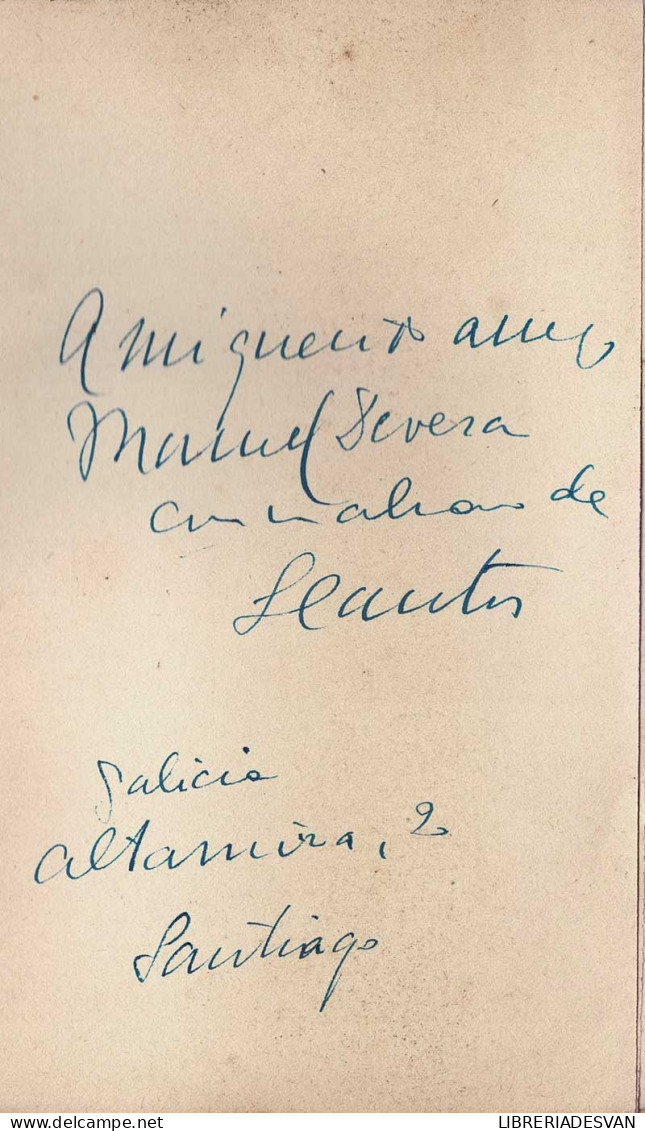 A mi querido amigo
Manuel Severa
con un abrazo de
Galicia
Altamira, 2
Santiago
delcampe.net
LIBRERIADESVAN